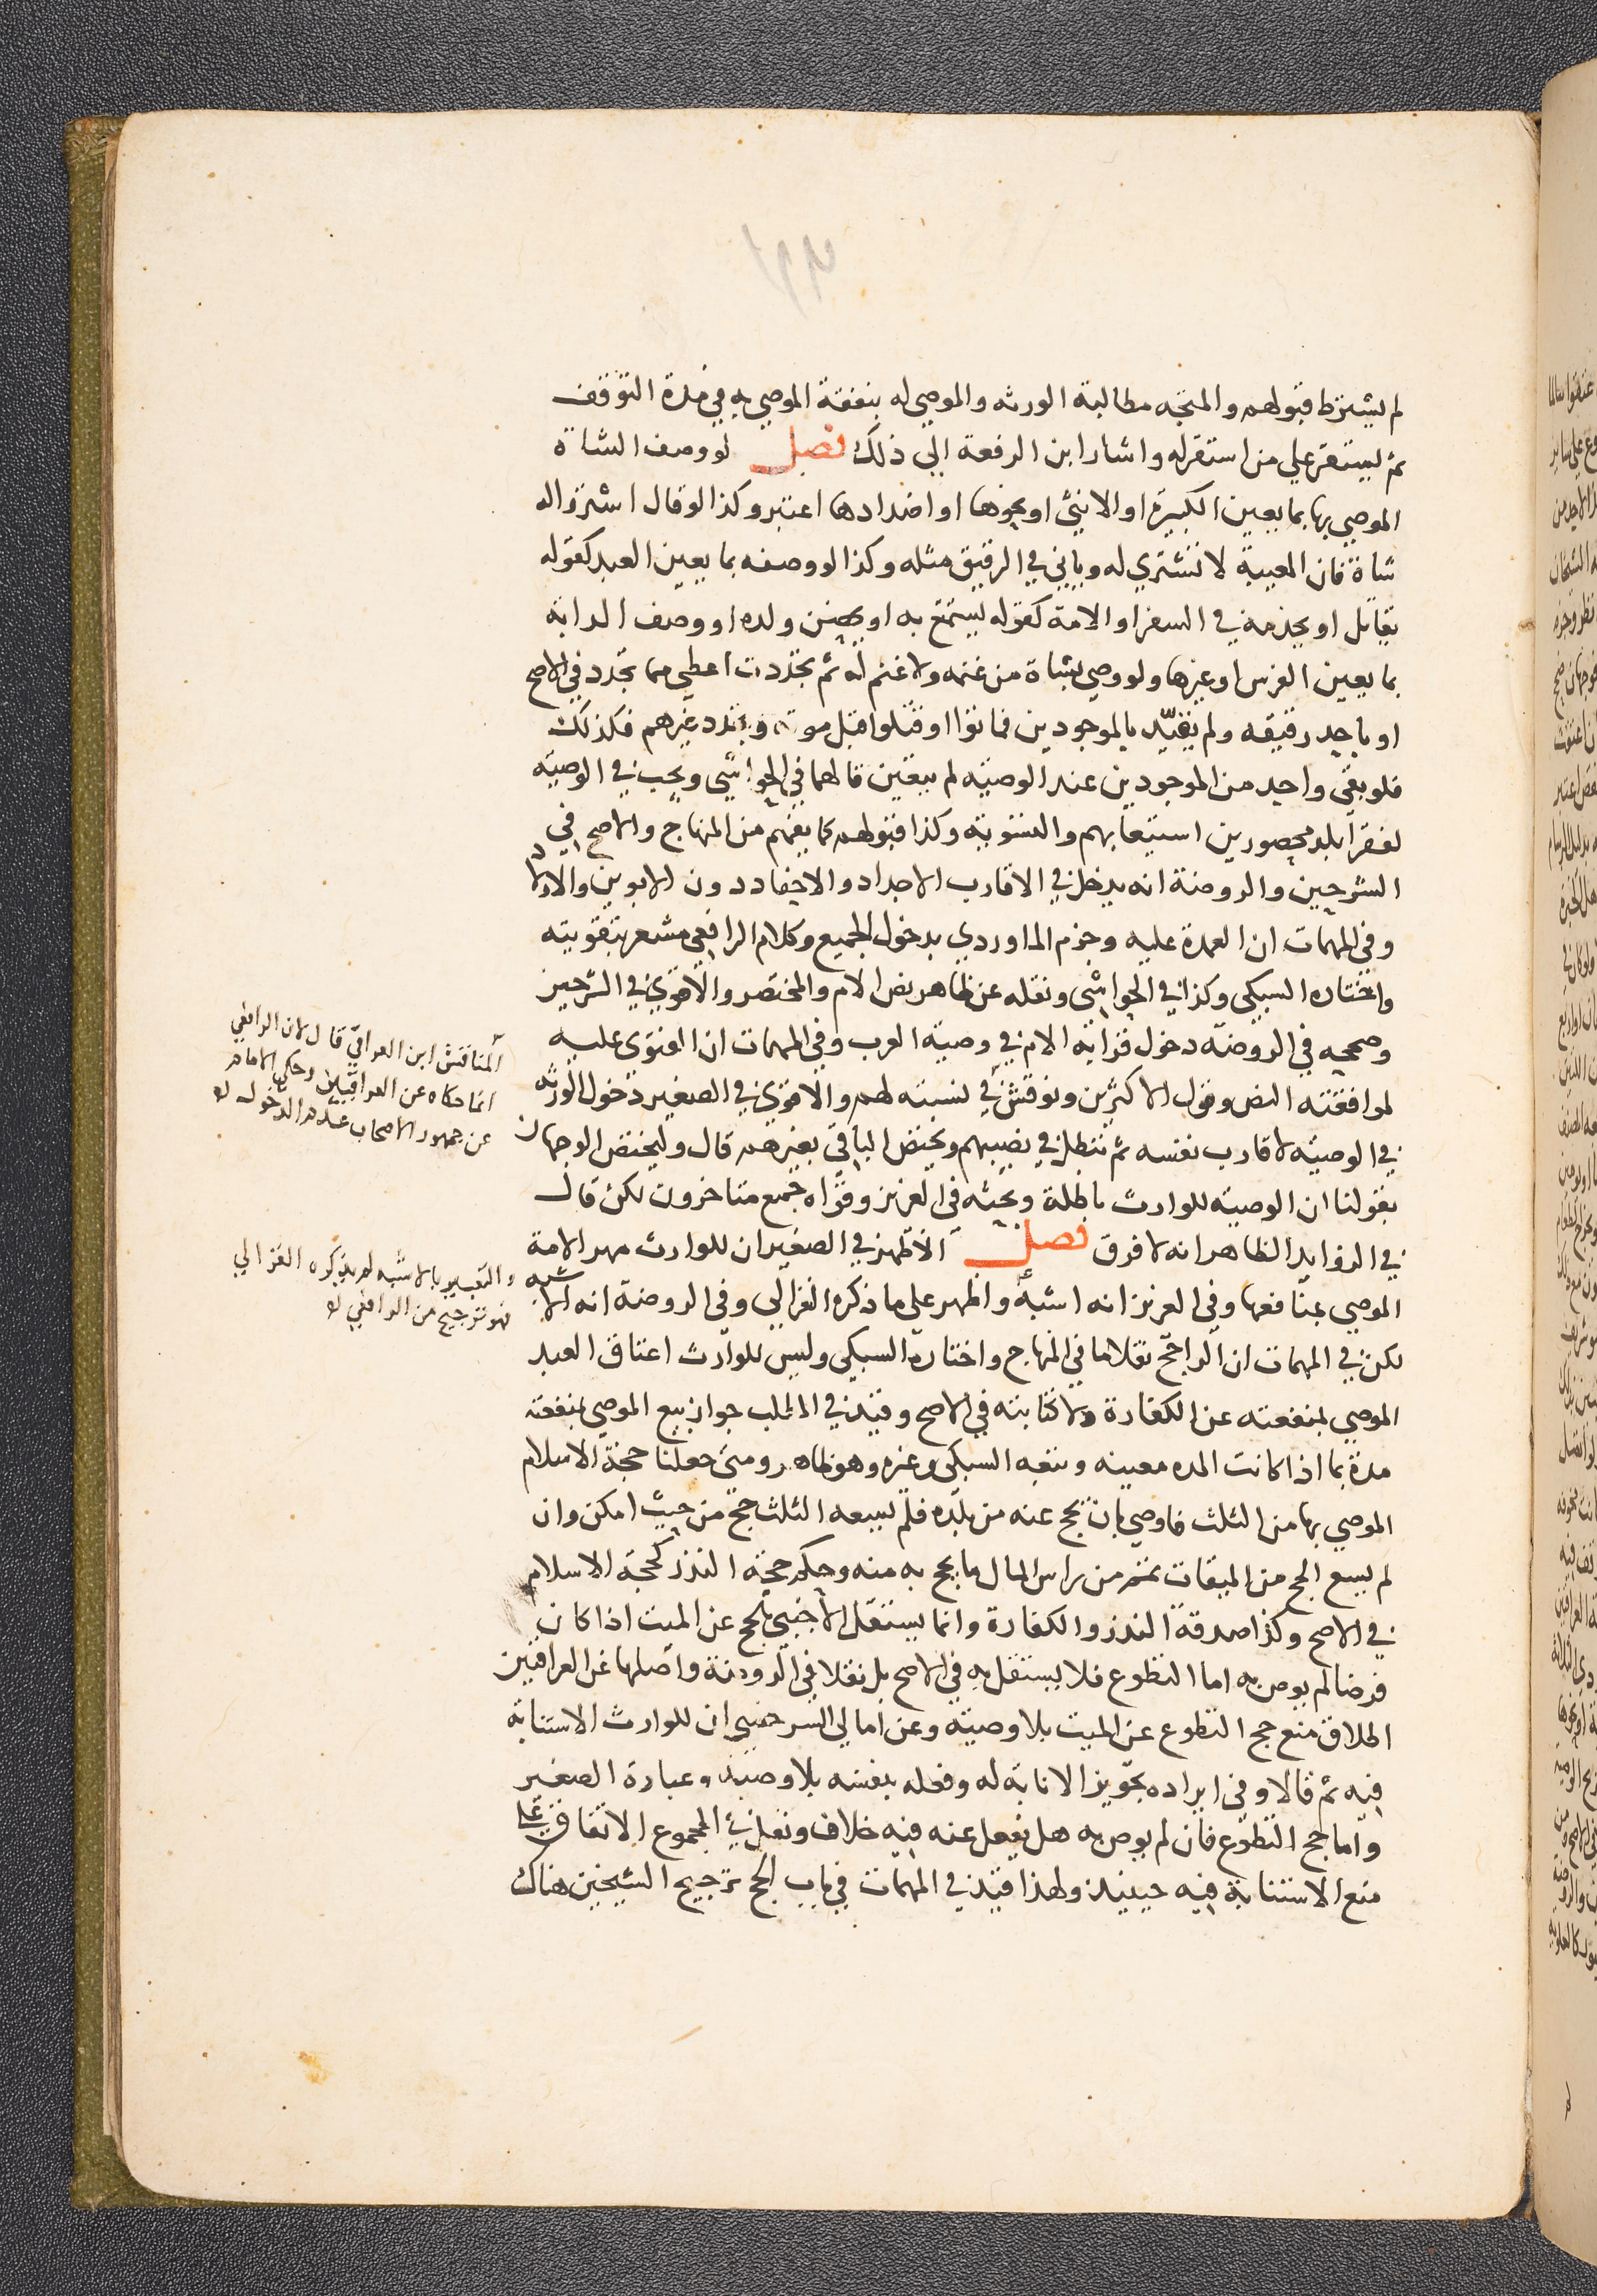 لم يشترط قبولهم والمتجه مطالبة الورثه والموصي له بنفقة الموصي به في مدة التوقف
ثم يستقر علي من استقر له واشار ابن الرفعة الي ذلك فصل لو وصف الشاة
الموصي بها بما يعين الكبيرة او الانثي او نحوها او اضدادها اعتبر وكذا لو قال اشتروا له
شاة فان المعيبة لا تشتري له وياتي في الرقيق مثله وكذا لو وصفه بما يعين العبد كقوله
يقاتل او يخدمه في السفر او الامة كقوله يستمتع به او يحضن ولده او وصف الدابة
بما يعين الفرس او غيرها ولو وصي بشاة من غنمه ولا غنم له ثم تجددت اعطي مما تجدد في الاصح
او باحد رقيقه ولم يقيد بالموجودين فماتوا او قتلوا قبل موته وتجدد غيرهم فكذلك
فلو بقي واحد من الموجودين عند الوصية لم يتعين قالهما في الحواشي ويجب في الوصية
لفقرا بلد محصورين استيعابهم والتسوية وكذا قبولهم كما يفهم من المنهاج والاصح في
الشرحين والروضة انه يدخل في الاقارب الاجداد والاحفاد دون الابوين والاولاد
وفي المهمات ان العمدة عليه وجزم الماوردي بدخول الجميع وكلام الرافعي مشعر بتقويته
واختاره السبكي وكذا في الحواشي ونقله عن ظاهر نص الام والمختصر والاقوي في الشرحين
وصححه في الروضة دخول قرابة الام في وصية العرب وفي المهمات ان الفتوي عليه
لموافقته النص وقول الاكثرين ونوقش في نسبته لهم والاقوي في الصغير دخول الورثه
في الوصية لاقارب نفسه ثم تبطل في نصيبهم ويختص الباقي بغيرهم قال وليختص الوجهان
بقولنا ان الوصية للوارث باطلة وبحثه في العزيز وقواه جمع متاخرون لكن قال
في الزوايد الظاهر انه لا فرق فصل الاظهر في الصغير ان للوارث مهر الامة
الموصي بمنافعها وفي العزيز انه اشبه واظهر علي ما ذكره الغزالي وفي الروضة انه الاشبه
لكن في المهمات ان الراجح نقلا ما في المنهاج واختاره السبكي وليس للوارث اعتاق العبد
الموصي بمنفعته عن الكفارة ولا كتابته في الاصح وقيد في المطلب جواز بيع الموصي بمنفعته
مدة بما اذا كانت المده معينه وتبعه السبكي وغيره وهو ظاهر ومتي جعلنا حجة الاسلام
الموصي بها من الثلث فاوصي بان يحج عنه من بلده فلم يسعه الثلث حج من حيث امكن وان
لم يسع الحج من الميقات تمم من راس المال ما يحج به منه وحكم حجة النذر كحجة الاسلام
في الاصح وكذا صدقة النذر والكفارة وانما يستقل الاجنبي بالحج عن الميت اذا كان
فرضا لم يوص به اما التطوع فلا يستقل به في الاصح بل نقلا في الروضة واصلها عن العراقيين
اطلاق منع حج التطوع عن الميت بلا وصية وعن امالي السرخسي ان للوارث الاستنابة
فيه ثم قالا وفي ايراده تجويز الانابة له وفعله بنفسه بلا وصية وعبارة الصغير
واما حج التطوع فان لم يوص به هل يفعل عنه فيه خلاف ونقل في المجموع الاتفاق علي
منع الاستنابة فيه حينيذ ولهذا قيد في المهمات في باب الحج ترجيح الشيخين هناك
المناقش ابن العراقي قال لان الرافعي
انما حكاه عن العراقيين وحكي الامام
عن جمهور الاصحاب عدم الدخول
والتعبير بالاشبه لم يذكره الغزالي
فهو ترجيح من الرافعي